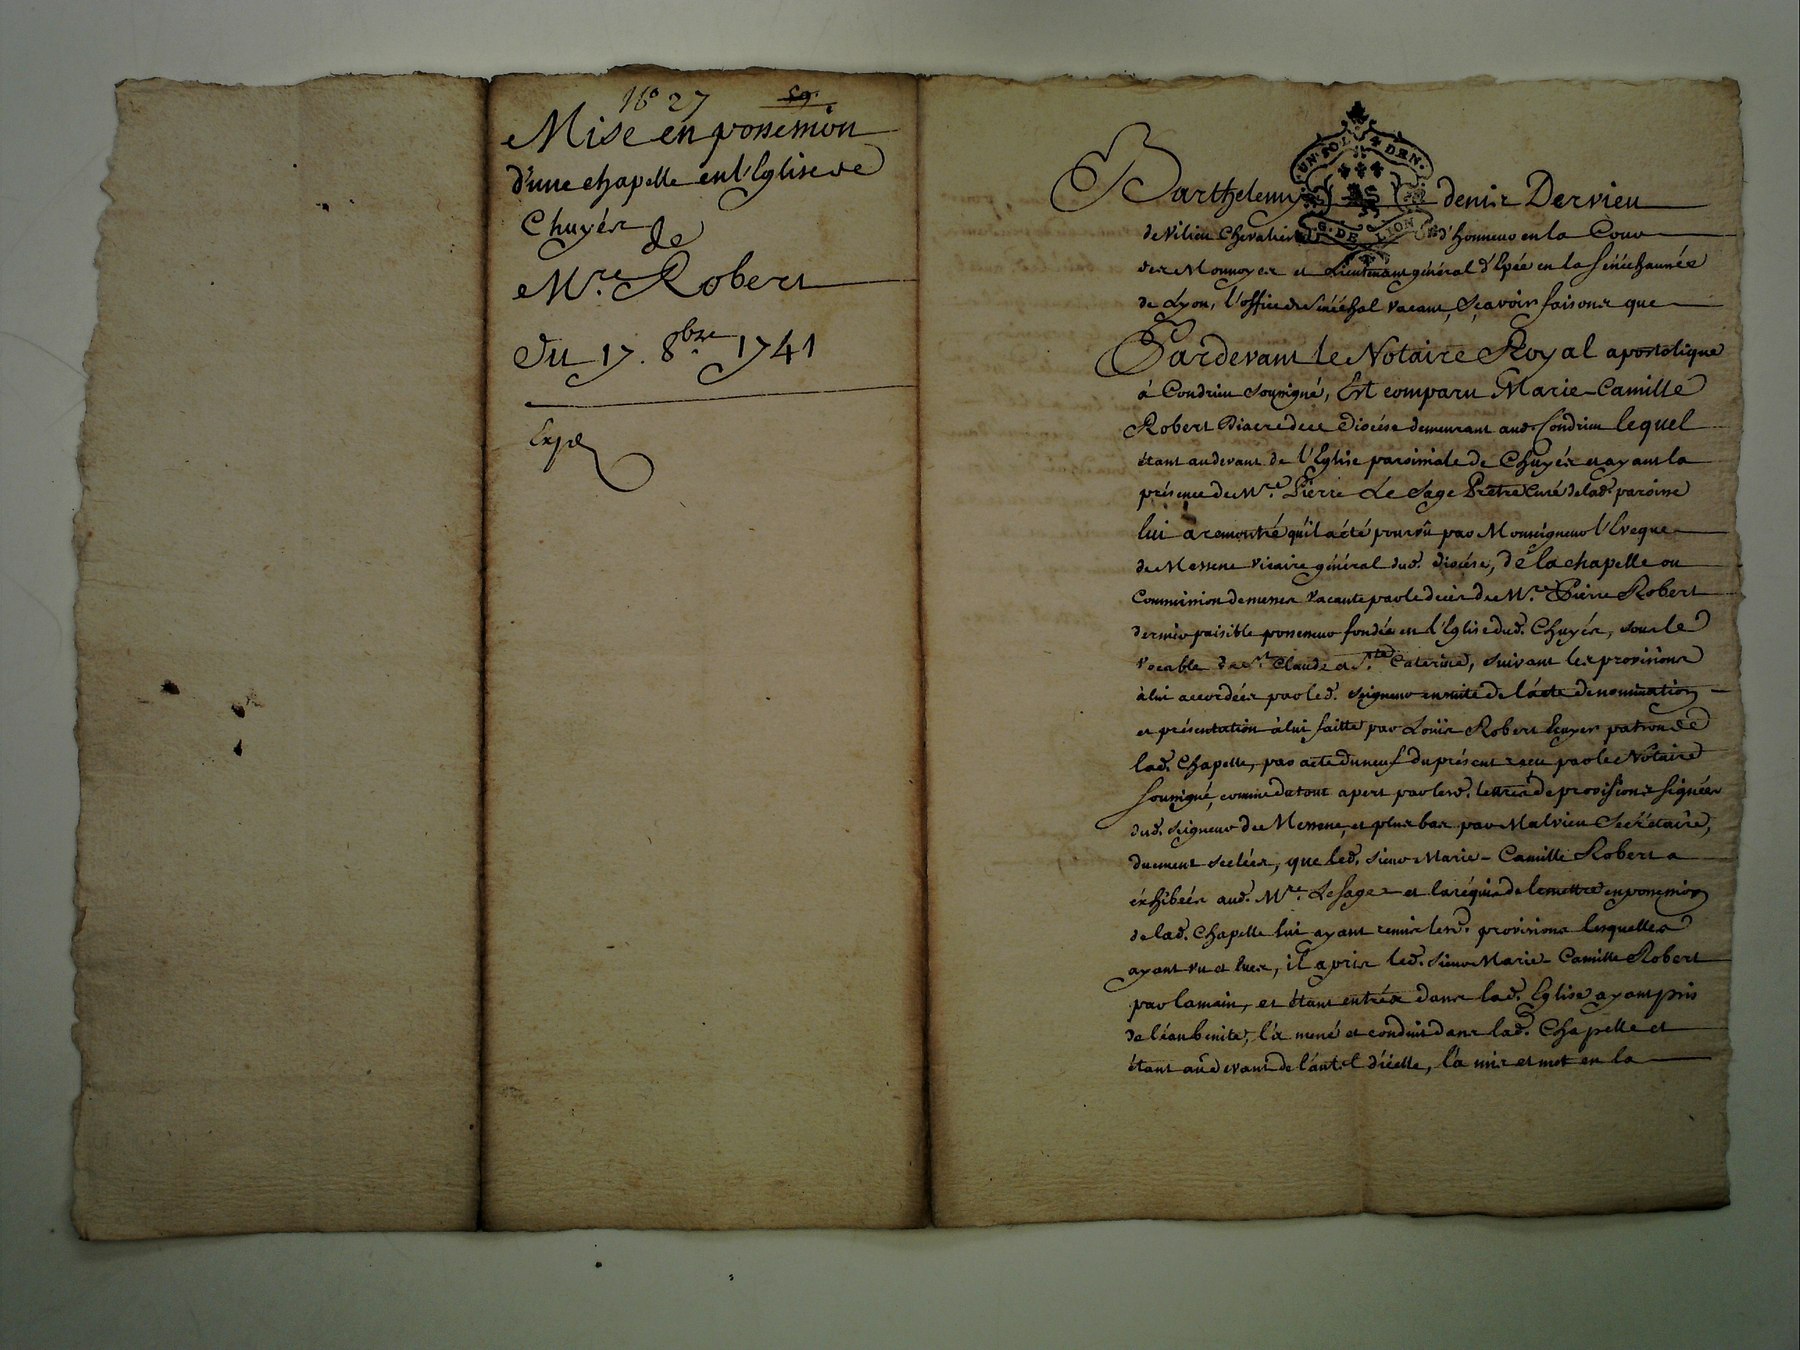 N° 27 59.
Mise en possession
d'une chapelle en l'Eglise de
Chuyés
de
M.re Robert
Du 17. 8.bre 1741
Exp.
UN SOL 4 DEN.
G. DE LION
Barthelemy denis Dervieu
de Vilieu Chevalier d'honneur en la Cour
des Monnoyes et Lieutenant général d'Epée en la Sénéchaussée
de Lyon, l'office de Sénéchal vacant, Sçavoir faisons que
Pardevant le Notaire Royal apostolique
à Condrieu soussigné, Est comparu Marie-Camille
Robert Diacre de ce Diocése demeurant aud. Condrieu lequel
étant au devant de l'Eglise paroissiale de Chuyés et ayant la
présence de M.re Pierre Le Sage Prêtre Curé de lad. paroisse
lui a remontré qu'il a été pourvû par Monseigneur l'Eveque
de Messene vicaire général dud. diocése, de la chapelle ou
Commission de messes vacante par le decès de M.re Pierre Robert
dernier paisible possesseur fondée en l'Eglise dud. Chuyés, sous le
vocable de S.t Claude et S.te Caterine, suivant les provisions
à lui accordées par led. seigneur ensuite de l'acte de nomination
et présentation à lui faitte par Loüis Robert Ecuyer patron de
lad. Chapelle, par acte du neuf du présent reçu par le Notaire
soussigné, comme du tout apert par lesd. lettres de provisions signées
dud. seigneur de Messene, et plus bas par Malvieu Secrétaire,
duement scelées, que led. sieur Marie-Camille Robert a
éxhibées aud. M.re Le Sage et la réquis de le mettre en possession
de lad. Chapelle lui ayant remis lesd. provisions lesquelles
ayant vu et lues, il a pris led. sieur Marie-Camille Robert
par la main, et étant entrés dans lad. Eglise ayant pris
de l'eau benite, l'a mené et conduit dans lad. Chapelle et
étant au devant de l'autel d'icelle, l'a mis et met en la